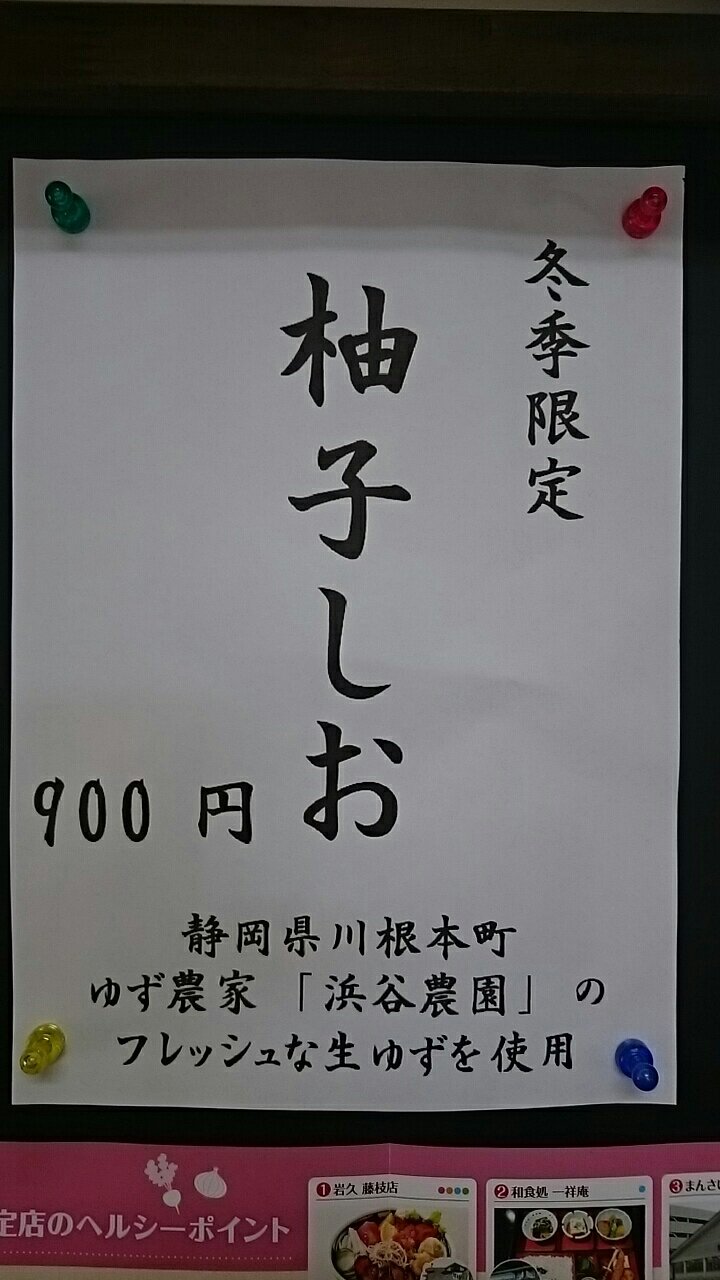 冬季限定
柚子しお
900 円
静岡県川根本町
ゆず農家「浜谷農園」の
フレッシュな生ゆずを使用
定店のヘルシーポイント
1 岩久 藤枝店
2 和食処 一祥庵
3 まんさい